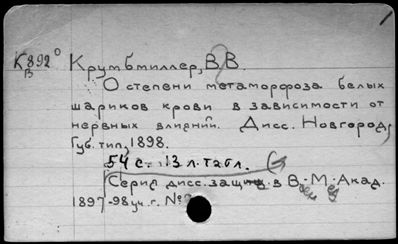 К892⁰
В
Крумбмиллер, В В.
О степени метаморфоза белых
шариков крови в зависимости от
нервных влияний. Дисс. Новгород,
Губ. тип., 1898.
54 с. 13 л. табл.
Серия дисс. защищ. в Воен-Мед Акад.
1897-98 уч. г. №